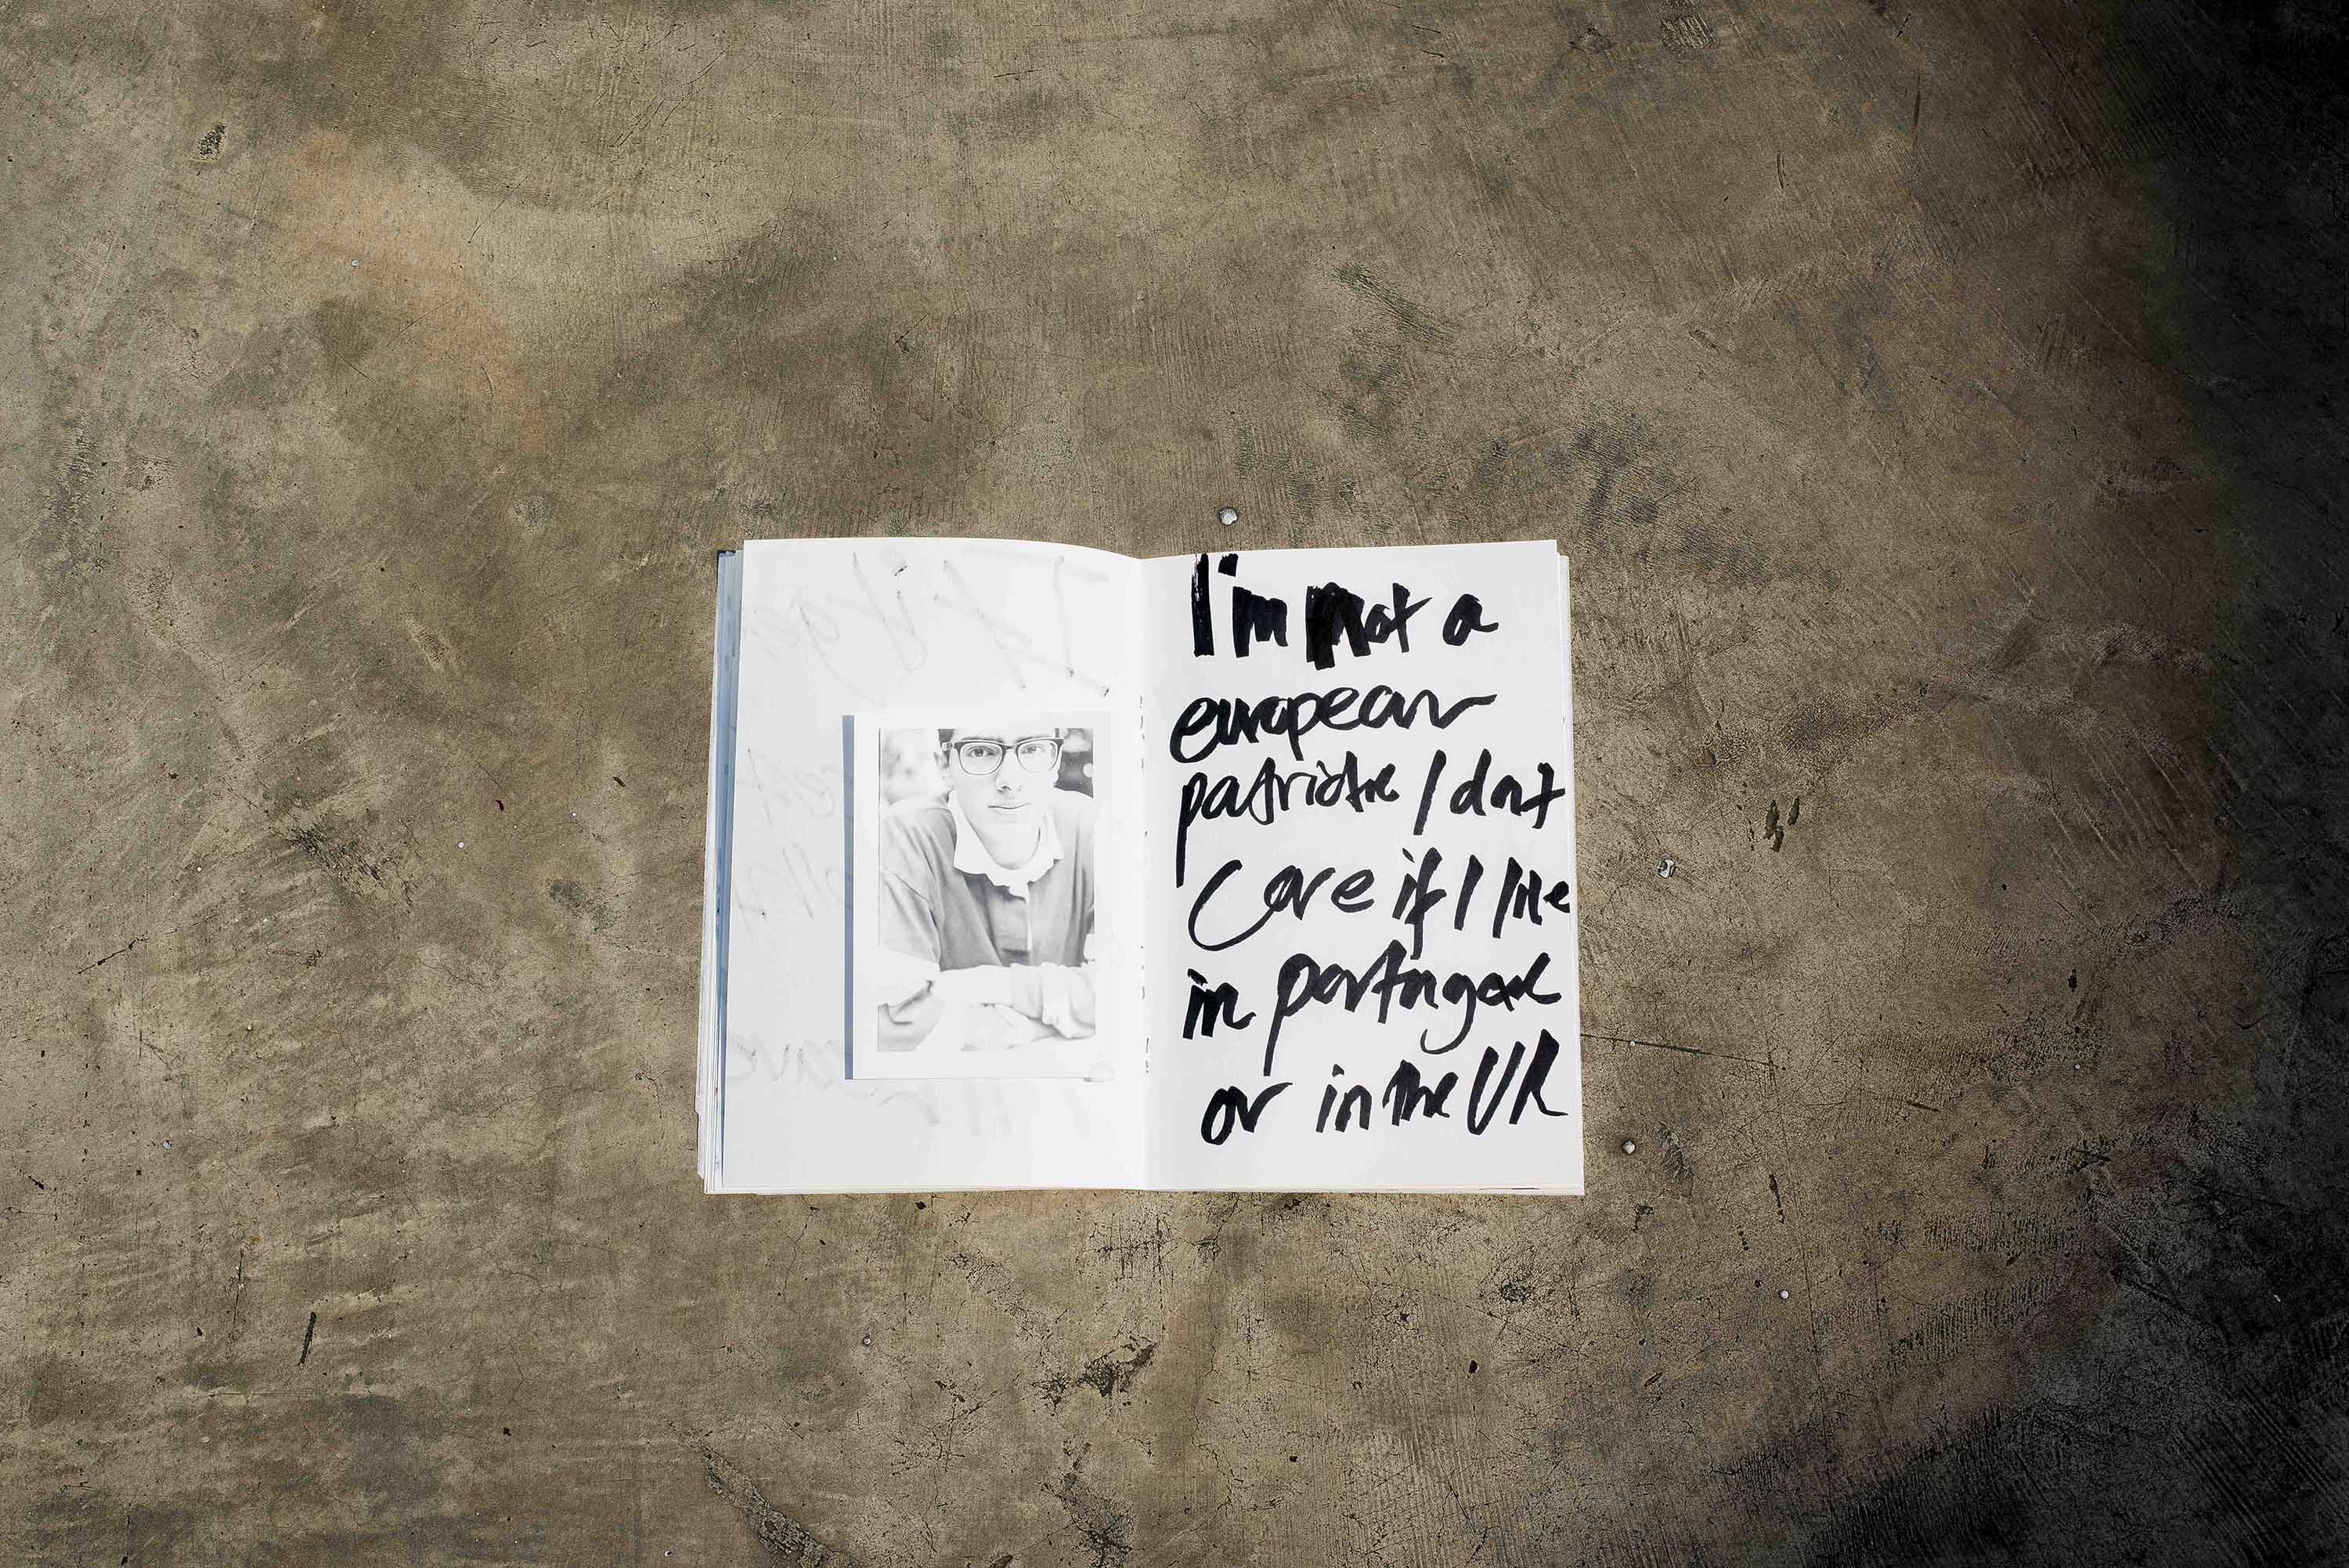 I'm not a
european
patriotic / don't
Care if I live
in portugal
or in the UK